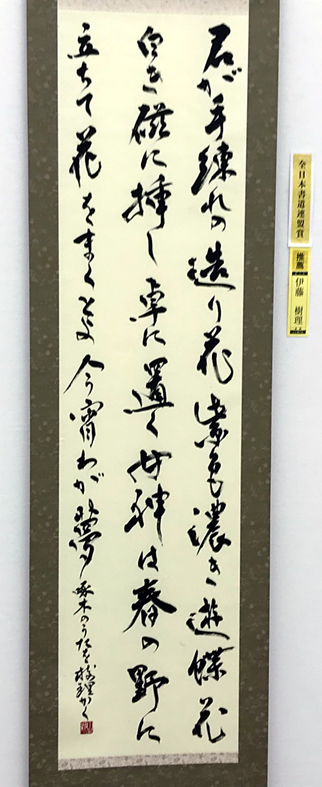 君が手練れの造り花紫も濃き遊蝶花
白き磁に挿し卓に置く女神は春の野に
立ちて花をまくとよ今宵わが夢
啄木のうたを樹理かく
全日本書道連盟賞
推薦 伊藤 樹理